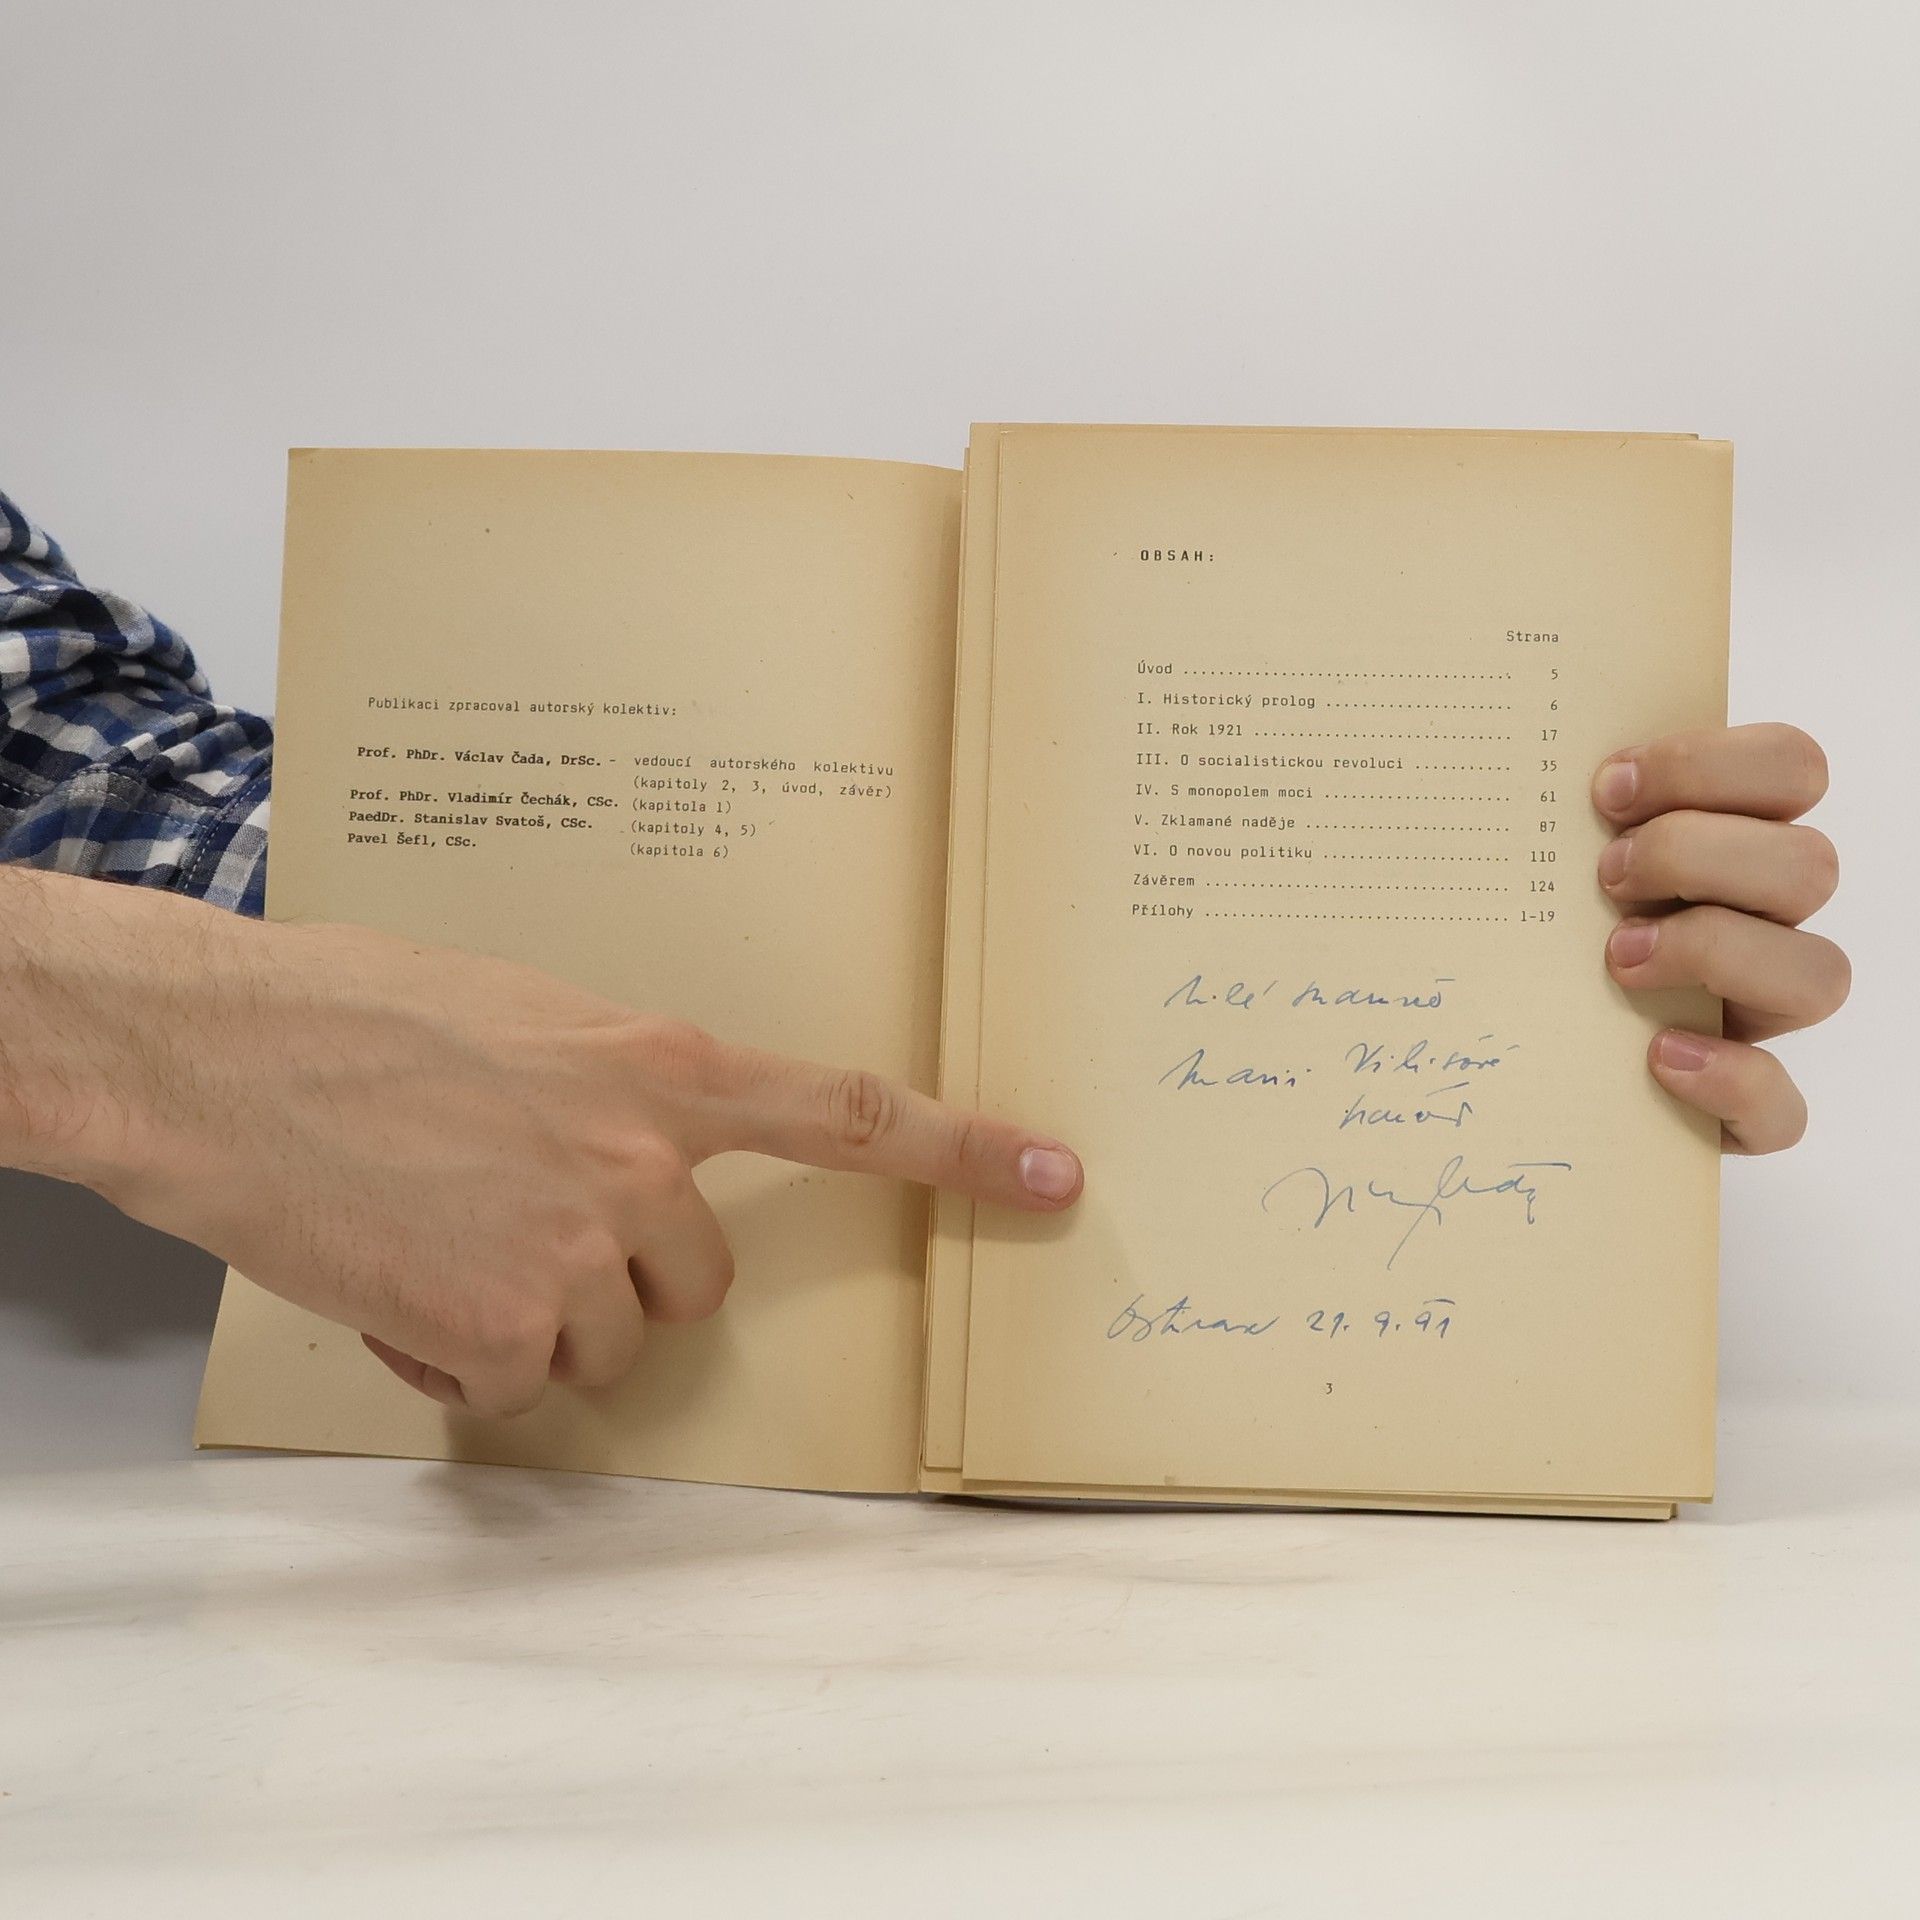 Publikaci zpracoval autorský kolektiv:
Prof. PhDr. Václav Čada, DrSc. - vedoucí autorského kolektivu
(kapitoly 2, 3, úvod, závěr)
Prof. PhDr. Vladimír Čechák, CSc. (kapitola 1)
PaedDr. Stanislav Svatoš, CSc. (kapitoly 4, 5)
Pavel Šefl, CSc. (kapitola 6)
OBSAH:
Strana
Úvod ..................................... 5
I. Historický prolog ..................... 6
II. Rok 1921 ............................. 17
III. O socialistickou revoluci ........... 35
IV. S monopolem moci ..................... 61
V. Zklamané naděje ....................... 87
VI. O novou politiku ..................... 110
Závěrem .................................. 124
Přílohy .................................. 1-19
Milé
Marii
Ostrava 21. 9. 91
3